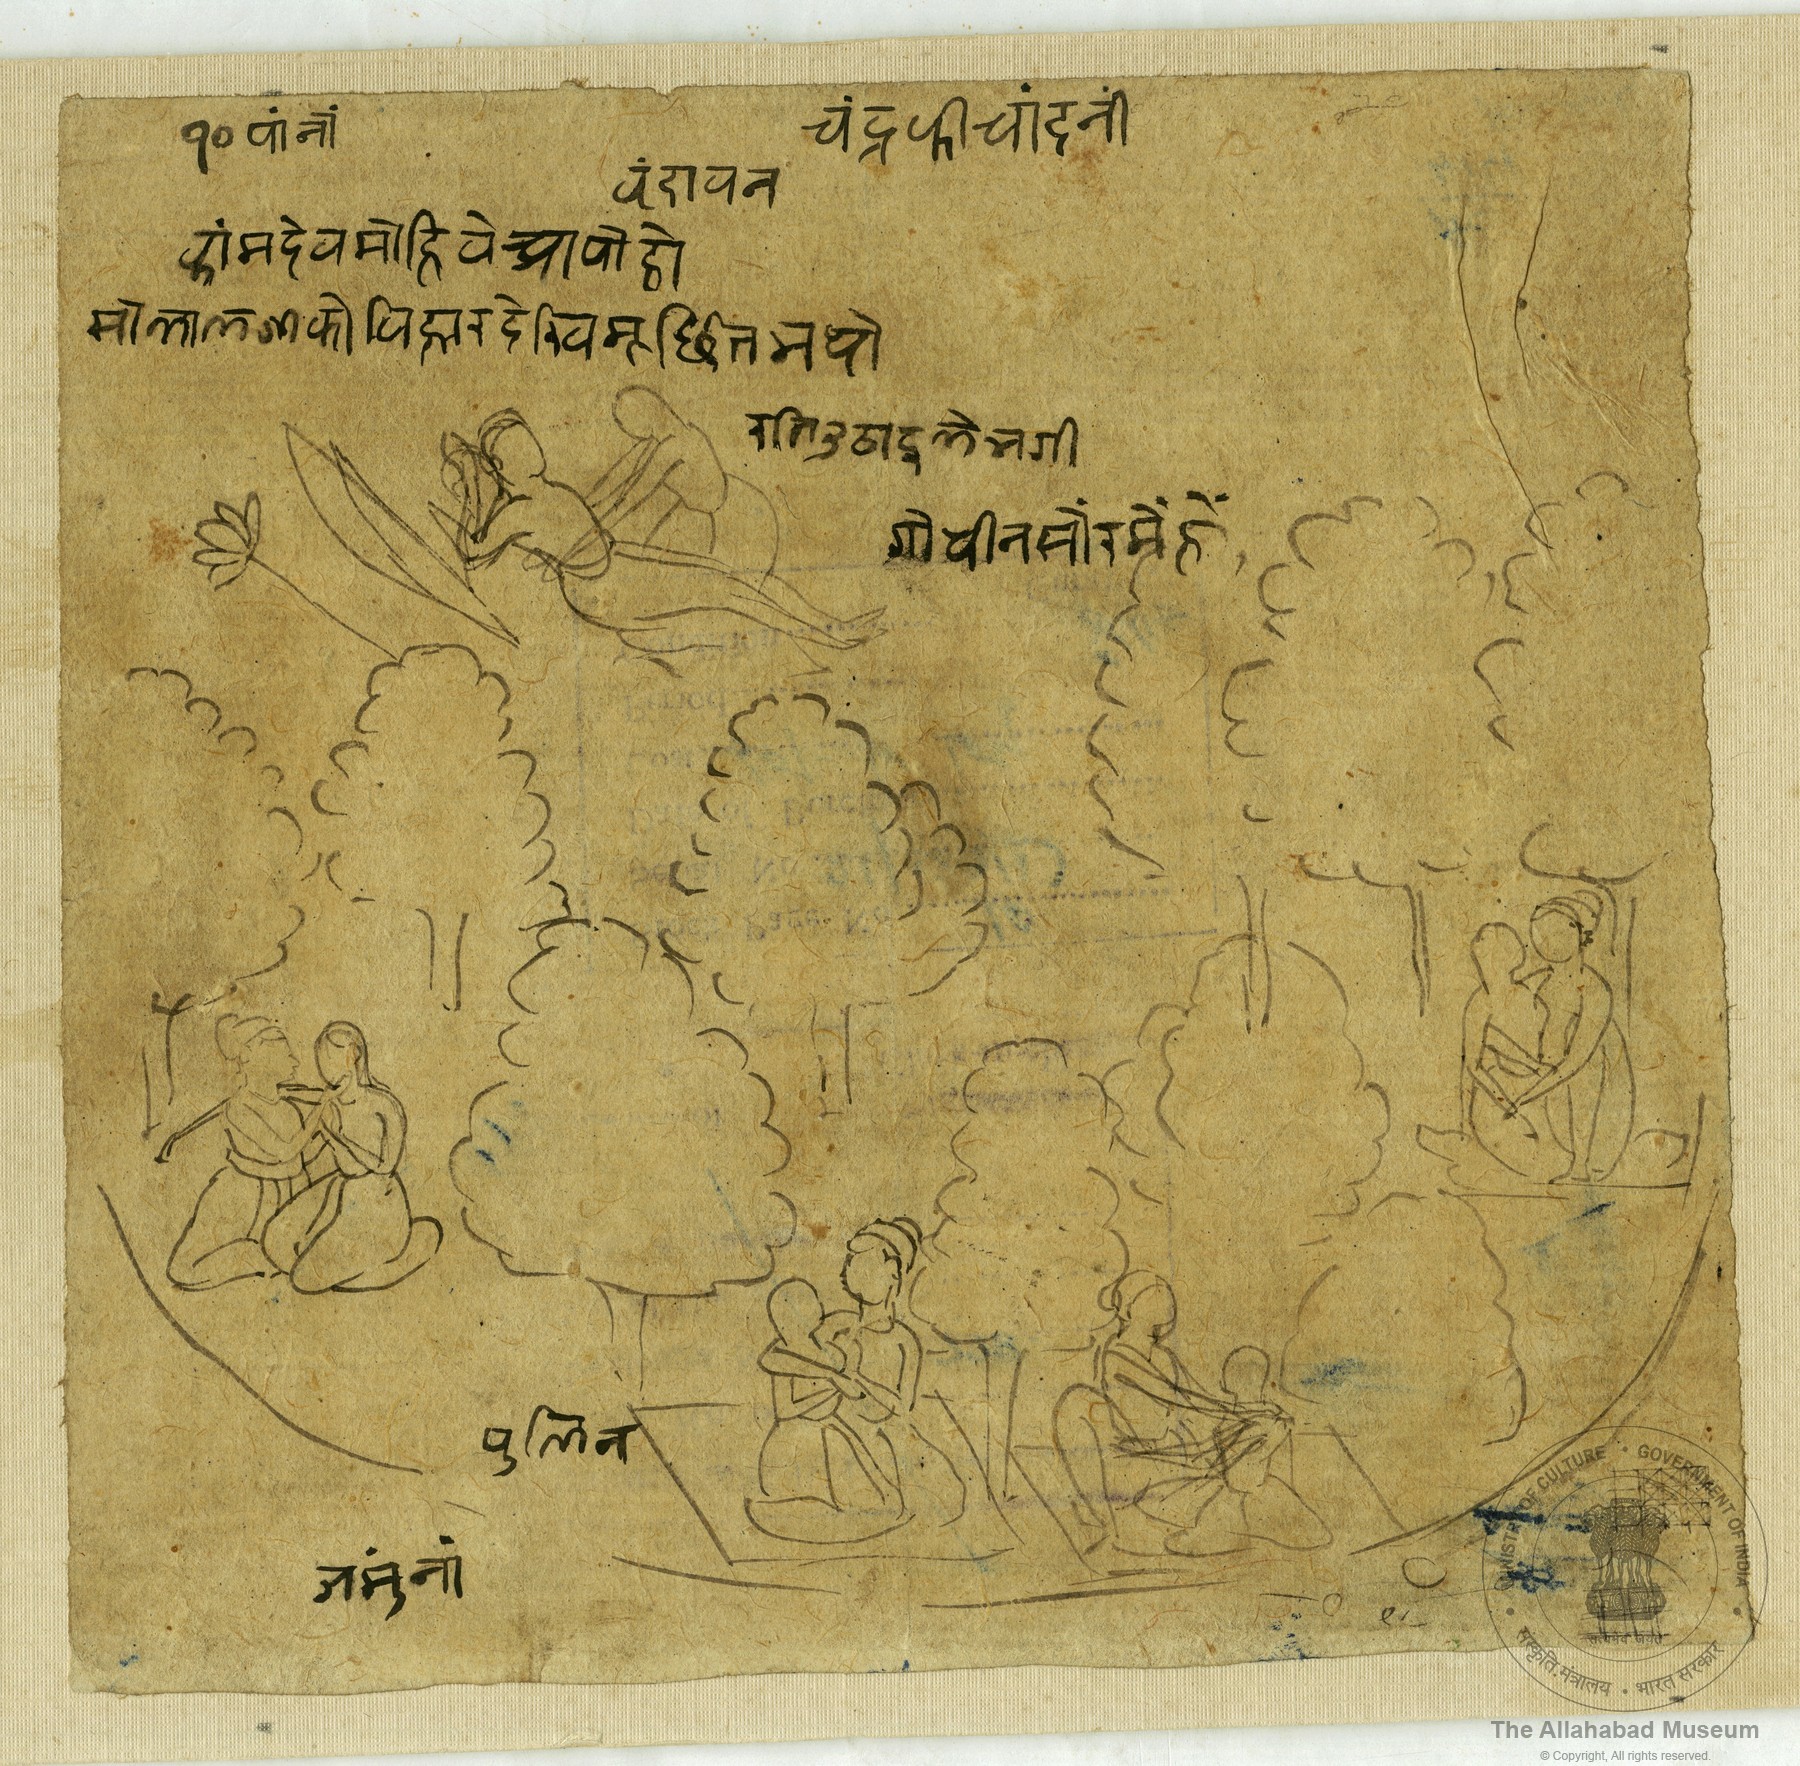 १० पांनां
चंद्र की चांदनीं
वंदावन
कांमदेव मोहिवे आयो हो
सो लालजी को विहार देखि मूर्छित भयो
रति उठाइ लै भगी
गोपीन सों रमैं हैं
पुलिन
जमुंनां
MINISTRY OF CULTURE • GOVERNMENT OF INDIA
सत्यमेव जयते
संस्कृति मंत्रालय • भारत सरकार
The Allahabad Museum
© Copyright, All rights reserved.